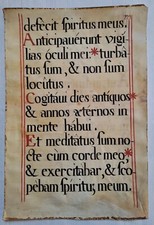 defecit spiritus meus.
Anticipauérunt vigi⸗
lias óculi mei:* turbá⸗
tus sum, & non sum
locútus.
Cogitáui dies antíquos*
& annos ætérnos in
mente hábui.
Et meditátus sum no⸗
cte cum corde meo,*
& exercitábar, & sco⸗
pébam spíritu, meum.